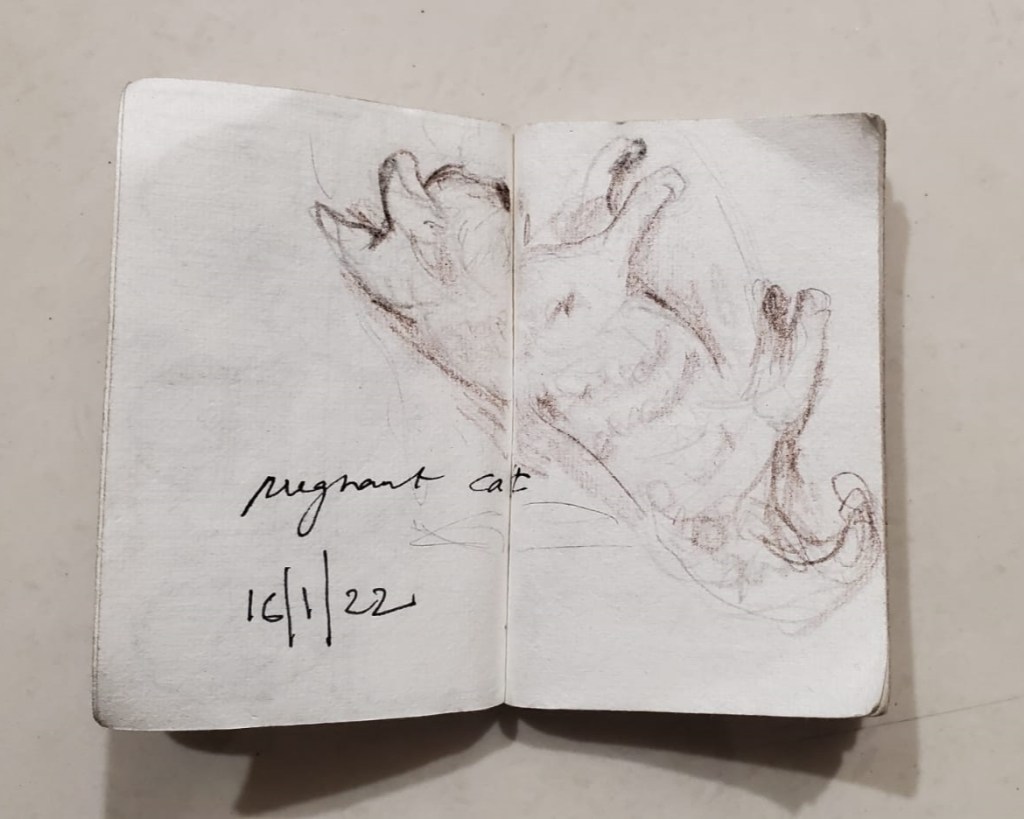 pregnant cat
16/1/22